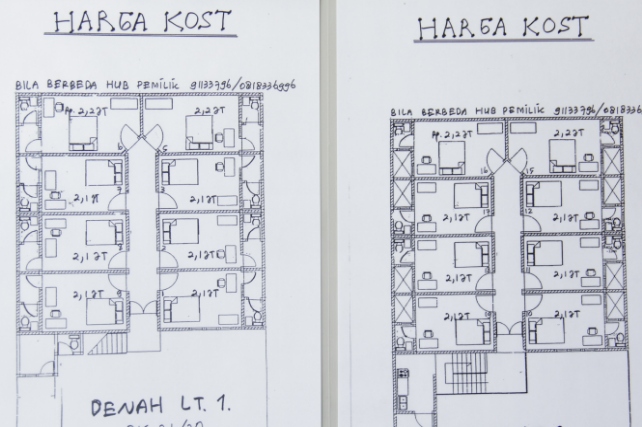 HARGA KOST
BILA BERBEDA HUB PEMILIK 91133796/0818336996
Rp. 2,2JT 2,2JT
6 5
2,1JT
7 3
2,1JT 2,1JT
2,1JT 2,1JT
DENAH LT. 1.
HARGA KOST
BILA BERBEDA HUB PEMILIK 91133796/081833
Rp. 2,2JT 2,2JT
16 15
2,1JT 2,1JT
17 12
2,1JT 2,1JT
2,1JT 2,1JT